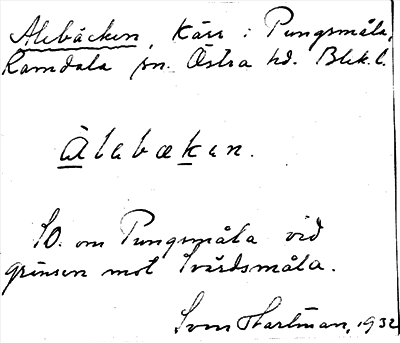 Alebäcken, Kärr i Pungsmåla,
Ramdala sn. Östra hd. Blek. l.
Àlebæken.
SO. om Pungsmåla vid
gränsen mot Svärdsmåla.
Sven Hartman, 1932